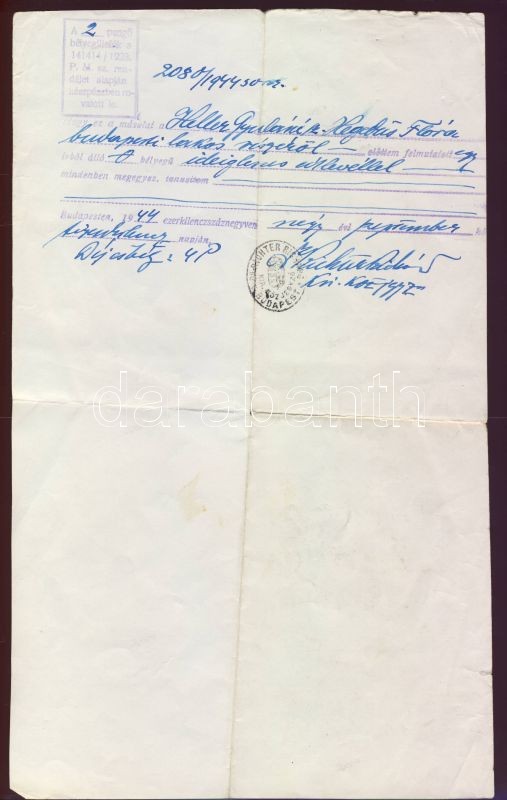 A 2 pengő
bélyegilleték a
141414/1933.
P. M. sz. ren-
delet alapján
készpénzben ro-
vatott le.
2080/1944 sorsz.
Hogy ez a másolat a Heller Gyuláné sz. Hegedüs Flóra
budapesti lakos részéről előttem felmutatott egy
ívből álló bélyegű ideiglenes útlevéllel
mindenben megegyez, tanusítom
Budapesten, 1944 ezerkilencszáznegyven négy évi szeptember
napján.
Díjabéj: 4P
RICHTER
BUDAPEST
kir. közjegyző
darabanth